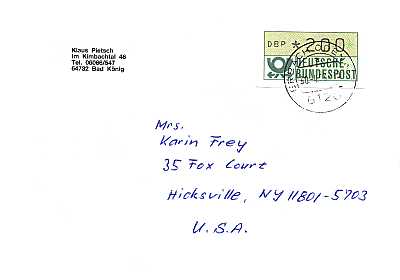 Klaus Pietsch
Im Kimbachtal 46
Tel. 06066/547
64732 Bad König
DBP * 200
DEUTSCHE
BUNDESPOST
Mrs.
Karin Frey
35 Fox Court
Hicksville, NY 11801-5703
U.S.A.